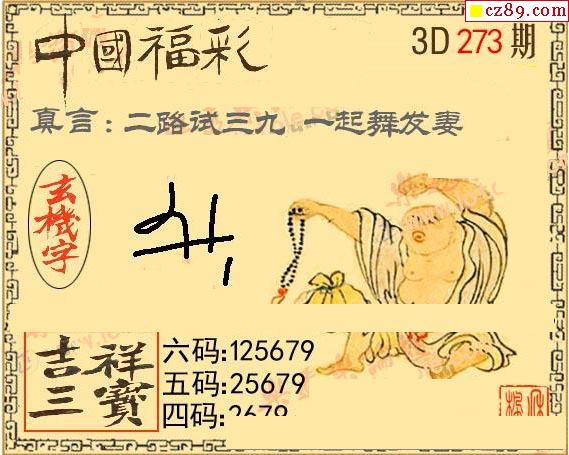 cz89.com
中國福彩
3D 273 期
真言：二路试三九 一起舞发妻
玄機字
吉祥三寶
六码:125679
五码:25679
四码:2679